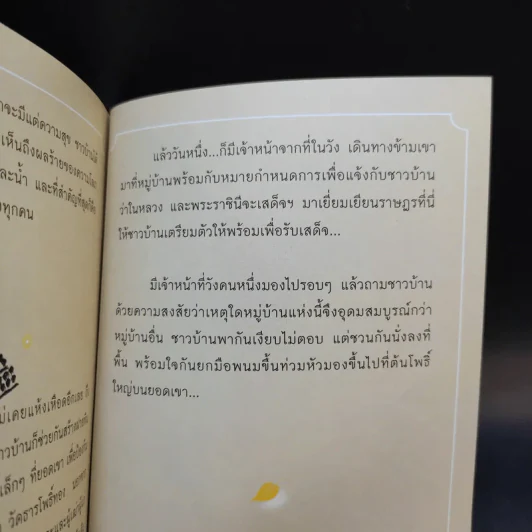 จะมีแต่ความสุข ชาวบ้าน
เห็นถึงผลร้ายของความโลภ
ละน้ำ และที่สำคัญที่สุด
ทุกคน
ไม่เคยแห้งเหือดอีกเลย
ชาวบ้านก็ช่วยกันสร้าง
เล็กๆ ที่ยอดเขา เพื่อ
วัดธารโพธิ์ทอง
แล้ววันหนึ่ง...ก็มีเจ้าหน้าจากที่ในวัง เดินทางข้ามเขา
มาที่หมู่บ้านพร้อมกับหมายกำหนดการเพื่อแจ้งกับชาวบ้าน
ว่าในหลวง และพระราชินีจะเสด็จฯ มาเยี่ยมเยียนราษฎรที่นี่
ให้ชาวบ้านเตรียมตัวให้พร้อมเพื่อรับเสด็จ...
มีเจ้าหน้าที่วังคนหนึ่งมองไปรอบๆ แล้วถามชาวบ้าน
ด้วยความสงสัยว่าเหตุใดหมู่บ้านแห่งนี้จึงอุดมสมบูรณ์กว่า
หมู่บ้านอื่น ชาวบ้านพากันเงียบไม่ตอบ แต่ชวนกันนั่งลงที่
พื้น พร้อมใจกันยกมือพนมขึ้นท่วมหัวมองขึ้นไปที่ต้นโพธิ์
ใหญ่บนยอดเขา...